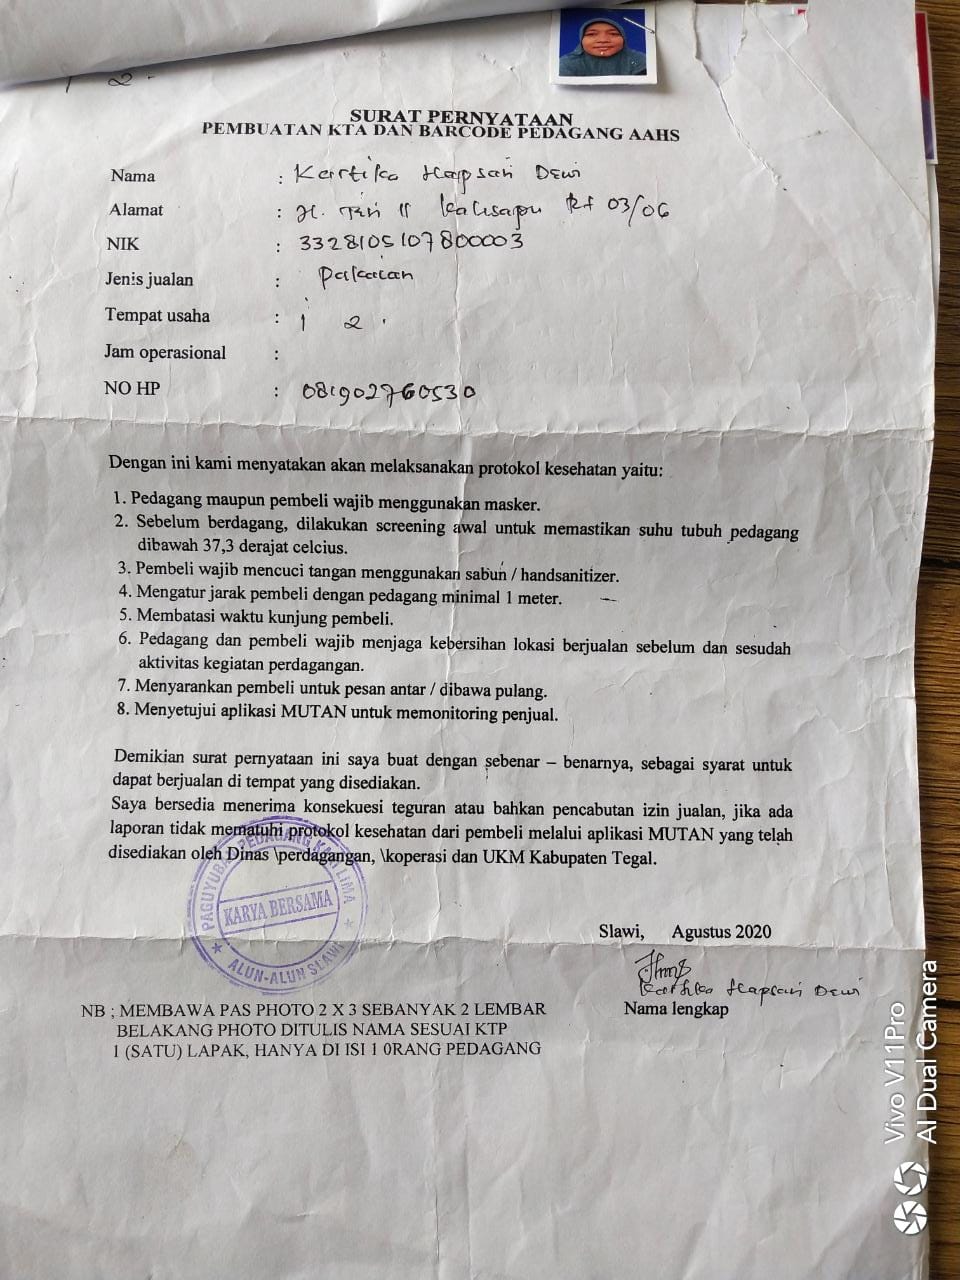 1 2 -
SURAT PERNYATAAN
PEMBUATAN KTA DAN BARCODE PEDAGANG AAHS
Nama : Kartika Hapsari Dewi
Alamat : Jl. Teri II Kalisapu Rt 03/06
NIK : 3328105107800003
Jenis jualan : Pakaian
Tempat usaha : 1 2 .
Jam operasional :
NO HP : 081902760530
Dengan ini kami menyatakan akan melaksanakan protokol kesehatan yaitu:
1. Pedagang maupun pembeli wajib menggunakan masker.
2. Sebelum berdagang, dilakukan screening awal untuk memastikan suhu tubuh pedagang
dibawah 37,3 derajat celcius.
3. Pembeli wajib mencuci tangan menggunakan sabun / handsanitizer.
4. Mengatur jarak pembeli dengan pedagang minimal 1 meter.
5. Membatasi waktu kunjung pembeli.
6. Pedagang dan pembeli wajib menjaga kebersihan lokasi berjualan sebelum dan sesudah
aktivitas kegiatan perdagangan.
7. Menyarankan pembeli untuk pesan antar / dibawa pulang.
8. Menyetujui aplikasi MUTAN untuk memonitoring penjual.
Demikian surat pernyataan ini saya buat dengan sebenar – benarnya, sebagai syarat untuk
dapat berjualan di tempat yang disediakan.
Saya bersedia menerima konsekuesi teguran atau bahkan pencabutan izin jualan, jika ada
laporan tidak mematuhi protokol kesehatan dari pembeli melalui aplikasi MUTAN yang telah
disediakan oleh Dinas \perdagangan, \koperasi dan UKM Kabupaten Tegal.
PAGUYUBAN PEDAGANG KAKI LIMA
KARYA BERSAMA
ALUN-ALUN SLAWI
Slawi, Agustus 2020
Kartika Hapsari Dewi
Nama lengkap
NB ; MEMBAWA PAS PHOTO 2 X 3 SEBANYAK 2 LEMBAR
BELAKANG PHOTO DITULIS NAMA SESUAI KTP
1 (SATU) LAPAK, HANYA DI ISI 1 0RANG PEDAGANG
Vivo V11Pro
AI Dual Camera